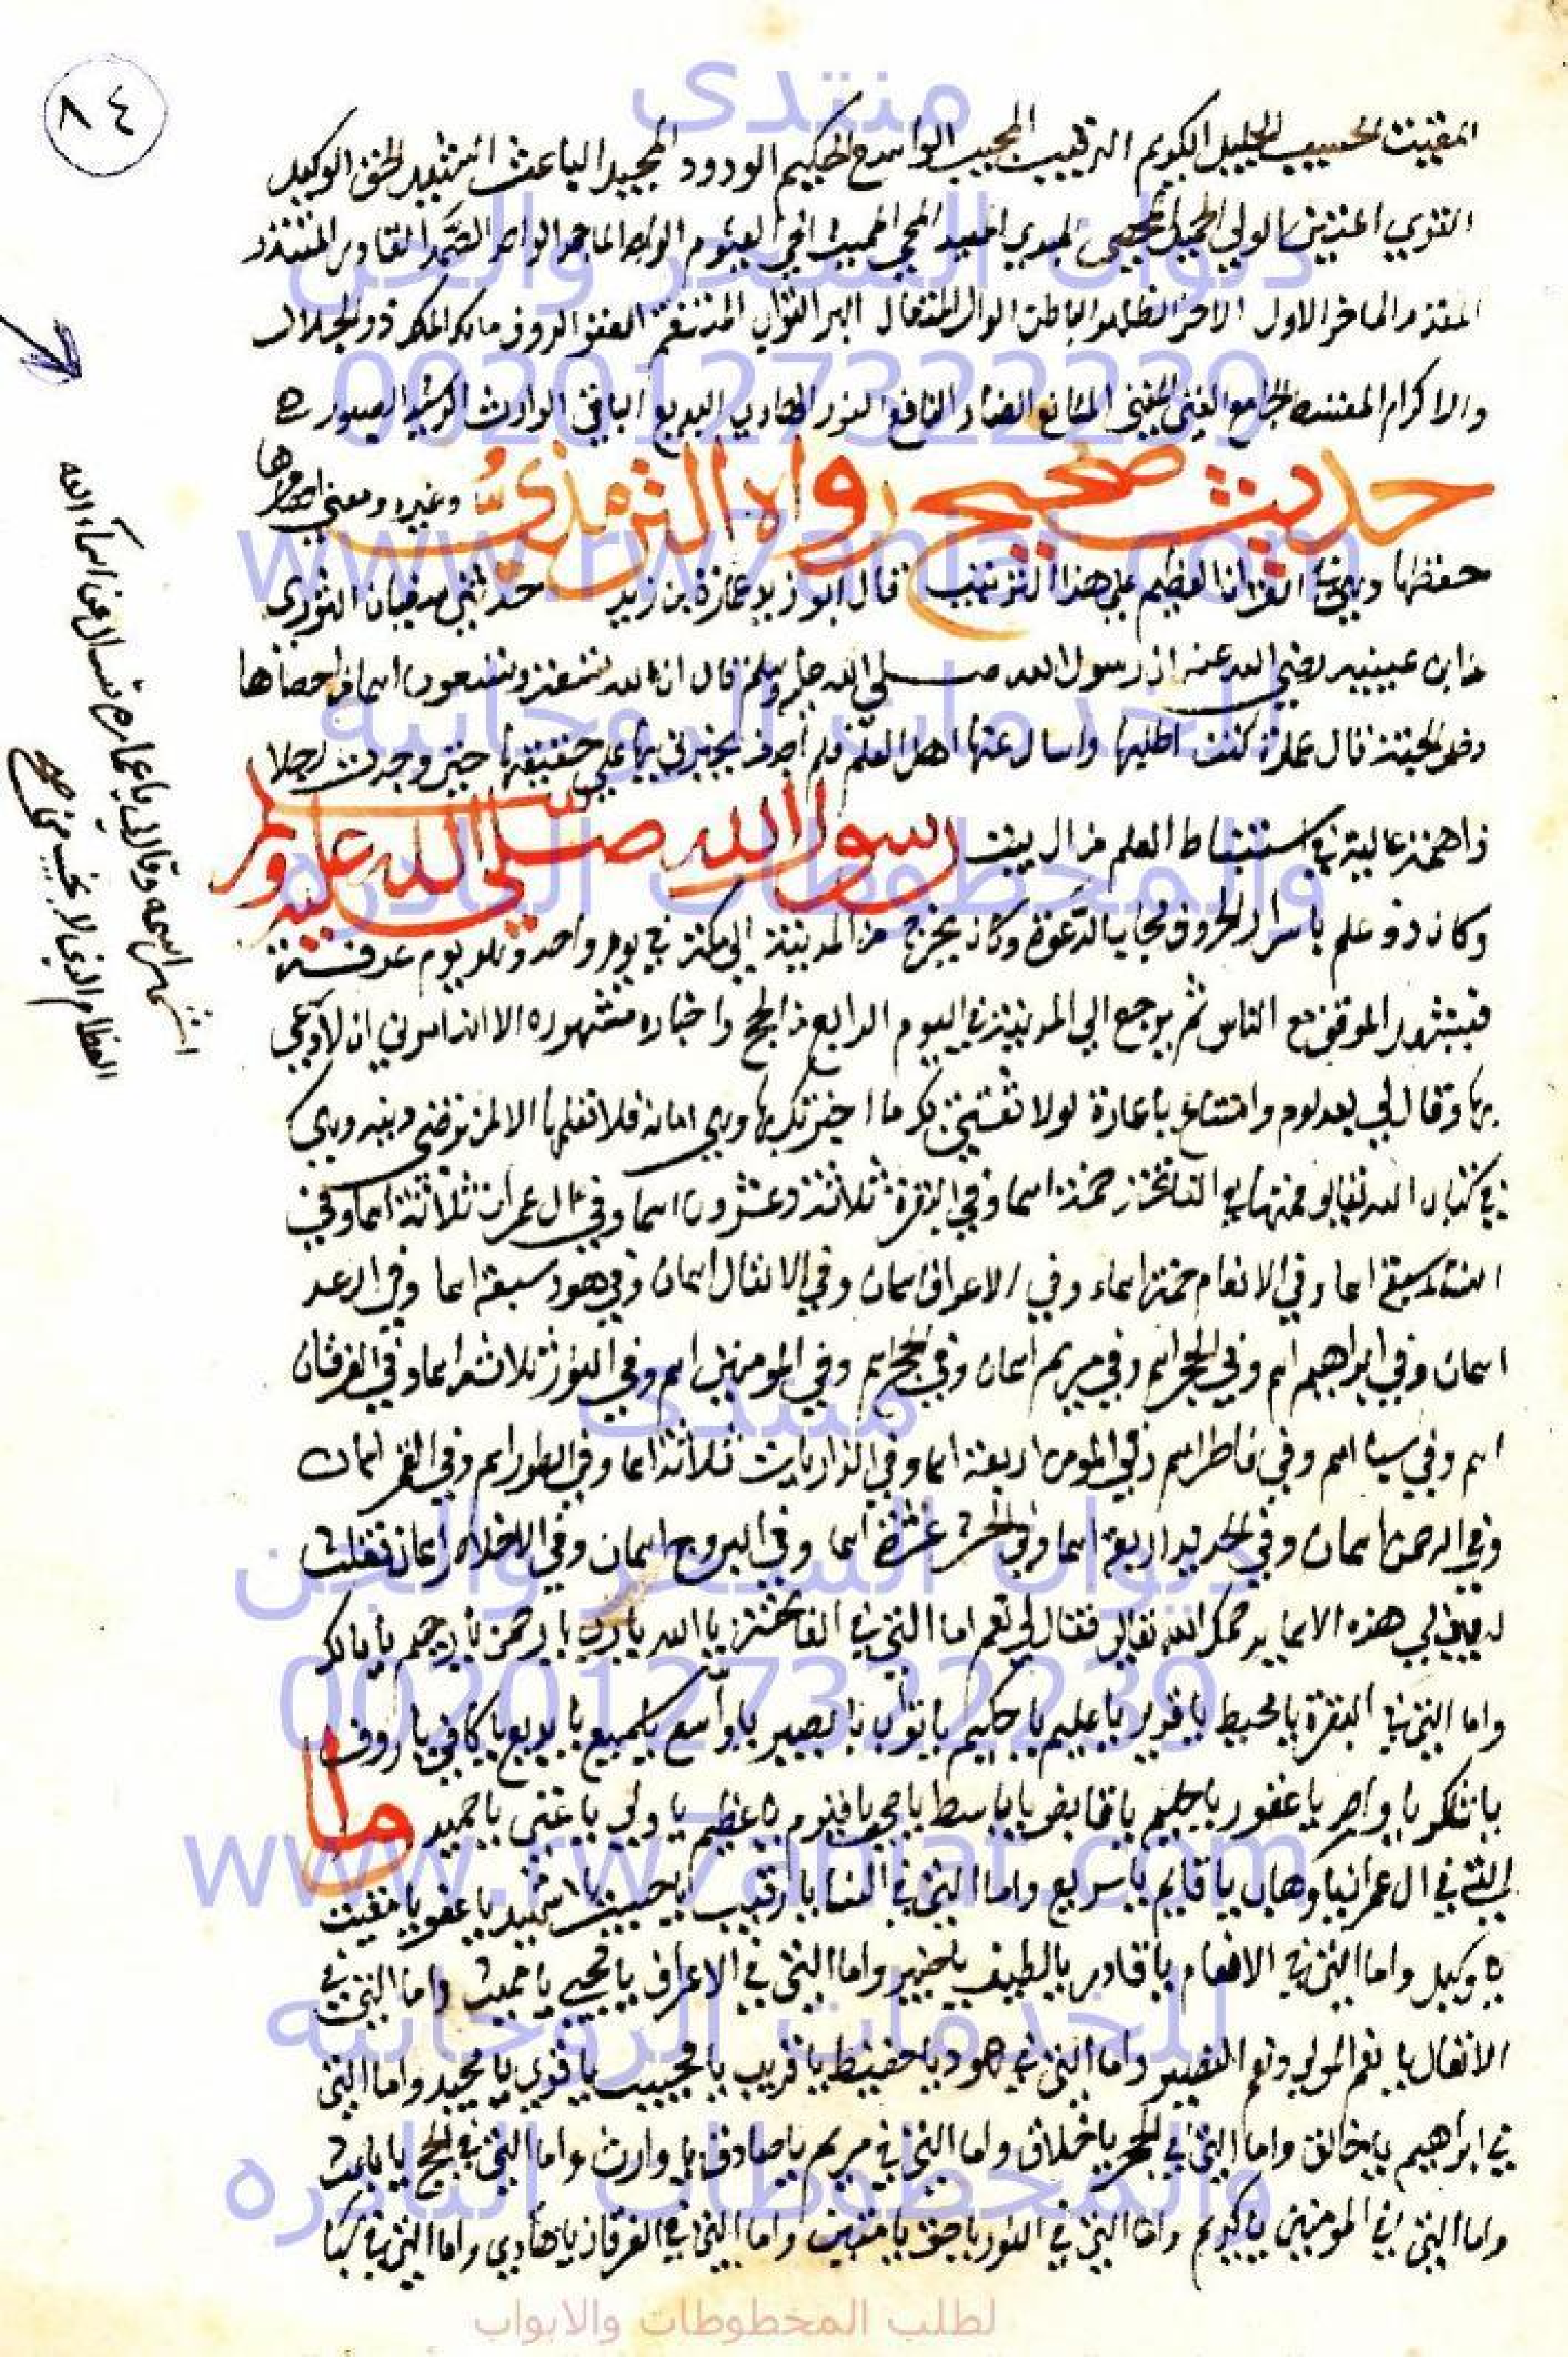 ٨٤
منتدى
المقيت الحسيب الجليل الكريم الرقيب المجيب الواسع الحكيم الودود المجيد الباعث الشهيد الحق الوكيل
القوي المتين الولي الحميد المحصي المبدي المعيد المحي المميت الحي القيوم الواجد الماجد الواحد الصمد القادر المقتدر
ديوان السحر والجن
المقدم الماخر الاول الاخر الظاهر الباطن الوال المتعال البر التواب المنتقم العفو الروف مالك الملك ذو الجلال
0020127322239
والاكرام المقسط الجامع الغني المغني المانع الضار النافع النور الهادي البديع الباقي الوارث الرشيد الصبور ه
حديث صحيح رواه الترمذي وغيره ومعنى احصاها
www.rw7aniat.com
حفظها وهي في القران العظيم على هذا الترتيب قال ابو زيد عمارة بن زيد حدثني سفيان الثوري
عن ابن عيينه رضي الله عنه ان رسول الله صلى الله عليه وسلم قال ان لله تسعة وتسعون اسما من احصاها
للخدمات الروحانيه
دخل الجنة قال عمارة كنت اطلبها واسال عنها اهل العلم فلم اجد من يخبرني بها على حقيقتها حتى وجدت رجلا
ذا همة عالية في استنباط العلم من ال بيت رسول الله صلى الله عليه وسلم
والمخطوطات النادره
وكان ذو علم باسرار الحروف مجاب الدعوة وكان يخرج من المدينة الى مكة في يوم واحد وهو يوم عرفة
فيشهد الموقف مع الناس ثم يرجع الى المدينة في اليوم الرابع من الحج واخباره مشهوره الا انه امرني ان لا ادعي
بها وقال لي بعد لوم وامتناع يا عمارة لولا ثقتي بك ما اخبرتك بها وهي امانه فلا تعلمها الا لمن ترضى دينه وهي
في كتاب الله تعالى فمنها في الفاتحة خمسة اسما وفي البقرة ثلاثة وعشرون اسما وفي ال عمران ثلاثة اسما وفي
النساء سبعة اسما وفي الانعام خمسة اسماء وفي الاعراف اسمان وفي الانفال اسمان وفي هود سبعة اسما وفي الرعد
اسمان وفي ابراهيم اسم وفي الحجر اسم وفي مريم اسمان وفي الحج اسم وفي المومنين اسم وفي النور ثلاثة اسما وفي الفرقان
منتدى
اسم وفي سبا اسم وفي فاطر اسم وفي المومن اربعة اسما وفي الذاريات ثلاثة اسما وفي الطور اسم وفي القمر اسمان
وفي الرحمن اسمان وفي الحديد اربعة اسما وفي الحشر عشرة اسما وفي البروج اسمان وفي الاخلاص اسمان فقلت
ديوان السحر والجن
له بين لي هذه الاسما يرحمك الله تعالى فقال لي نعم اما التي في الفاتحة يا الله يا رب يا رحمن يا رحيم يا مالك
0020127322239
واما التي في البقرة يا محيط يا قدير يا عليم يا حكيم يا تواب يا بصير يا واسع يا سميع يا بديع يا كافي يا روف
يا شاكر يا واحد يا غفور يا حليم يا قابض يا باسط يا حي يا قيوم يا عظيم يا ولي يا غني يا حميد واما
www.rw7aniat.com
التي في ال عمران يا وهاب يا قايم يا سريع واما التي في النسا يا رقيب يا حسيب يا شهيد يا عفو يا مقيت
يا وكيل واما التي في الانعام يا قادر يا لطيف يا خبير واما التي في الاعراف يا محيي يا مميت واما التي في
للخدمات الروحانيه
الانفال يا نعم المولى ونعم النصير واما التي في هود يا حفيظ يا قريب يا مجيب يا قوي يا مجيد واما التي
في ابراهيم يا خالق واما التي في الحجر يا خلاق واما التي في مريم يا صادق يا وارث واما التي في الحج يا باعث
والمخطوطات النادره
واما التي في المومنين يا كريم واما التي في النور يا حق يا مبين واما التي في الفرقان يا هادي واما التي في سبا
لطلب المخطوطات والابواب
اشهر اسمه وقال يا عماره تسال عن اسماء الله
العظام الذي لا يخيب من